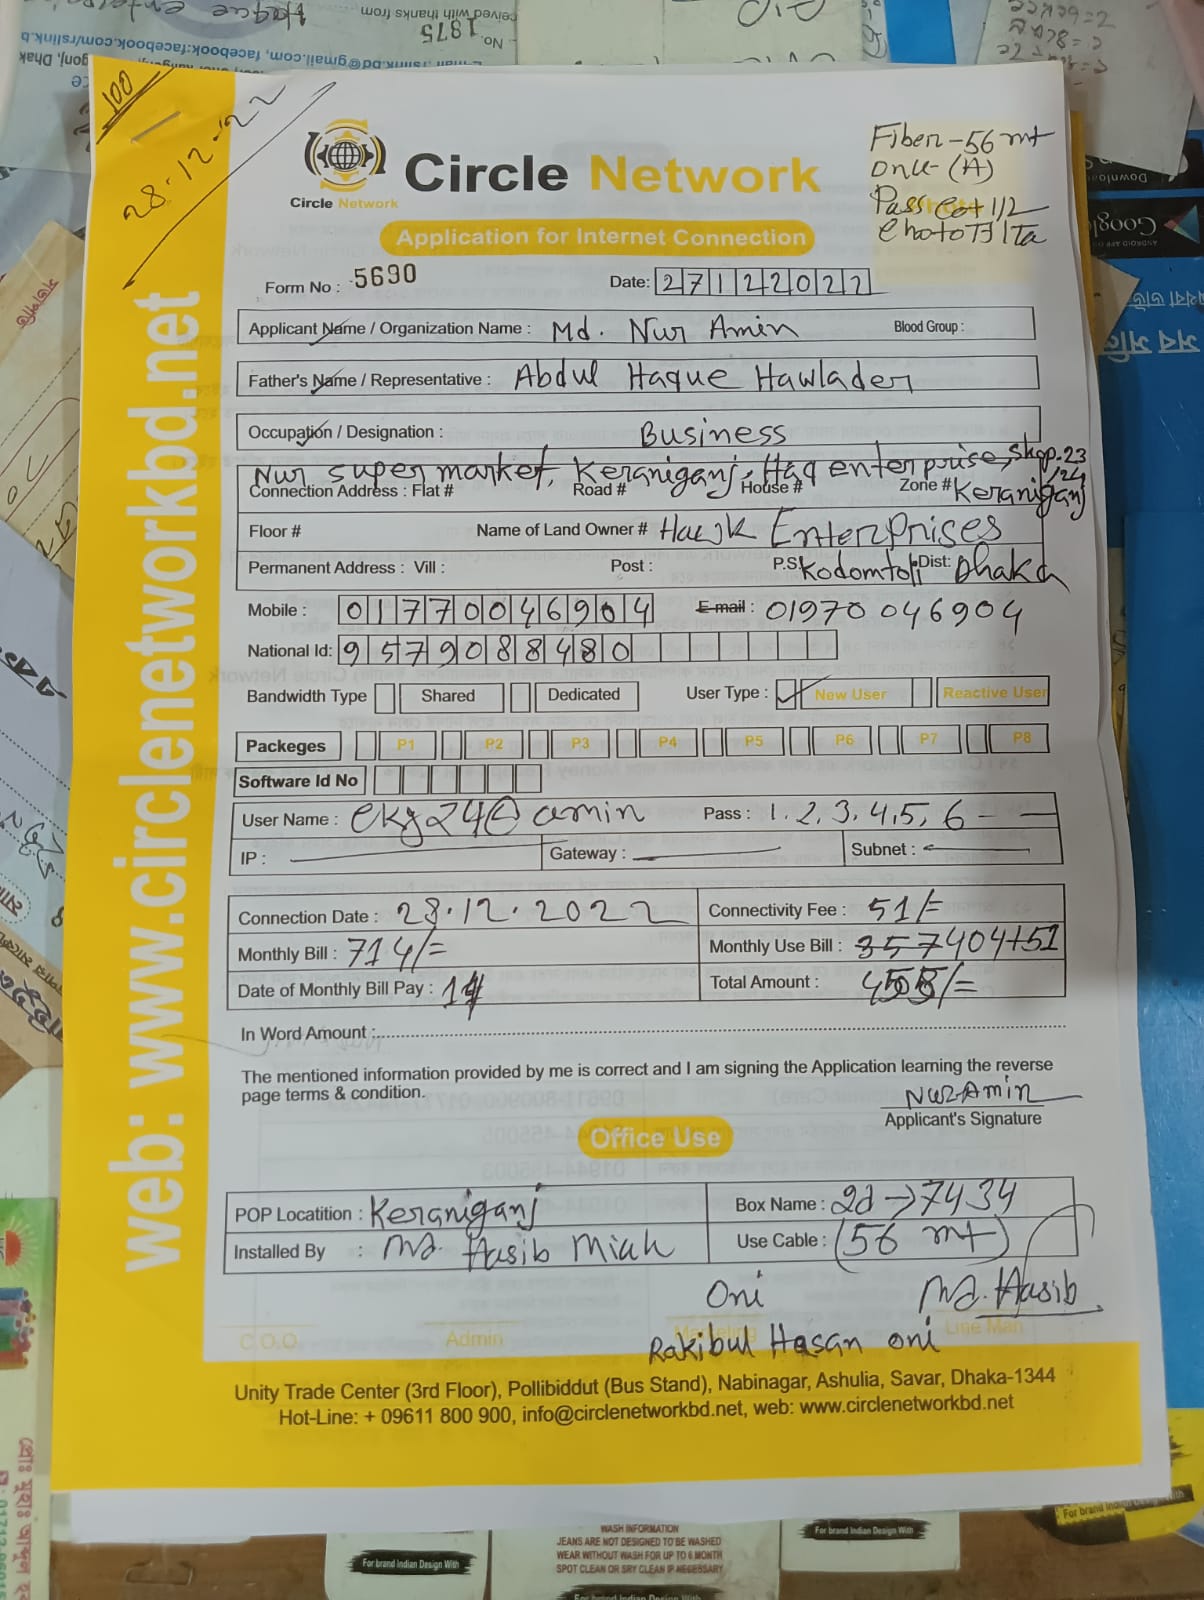 100
28.12.22
Circle Network
Circle Network
Fiber-56 mt
Onu-(A)
Pass Cot 1/2
Application for Internet Connection
Form No : 5690
Date: 27122022
Applicant Name / Organization Name : Md. Nur Amin Blood Group :
Father's Name / Representative : Abdul Haque Hawlader
Occupation / Designation : Business
Nur super market, Keraniganj, Haq enterprise, shop-23
/24
Connection Address : Flat # Road # House # Zone # Keraniganj
Floor # Name of Land Owner # Hawk Enterprises
Permanent Address : Vill : Post : P.S: Kodomtoli Dist: Dhaka
Mobile : 01770046904 E-mail : 01970 046904
National Id: 9579088480
Bandwidth Type Shared Dedicated User Type : New User Reactive User
Packeges P1 P2 P3 P4 P5 P6 P7 P8
Software Id No
User Name : ekg24@amin Pass : 1,2,3,4,5,6
IP : Gateway : Subnet :
Connection Date : 28.12.2022 Connectivity Fee : 51/=
Monthly Bill : 714/= Monthly Use Bill : 357 404+51
Date of Monthly Bill Pay : Total Amount :
In Word Amount :
The mentioned information provided by me is correct and I am signing the Application learning the reverse
page terms & condition.
Nur Amin
Applicant's Signature
Office Use
POP Locatition : Keraniganj Box Name : 2d→7434
Installed By : Md. Hasib Miah Use Cable : (56 mt)
Oni Md. Hasib
C.O.O. Admin Marketing Line Man
Rakibul Hasan oni
Unity Trade Center (3rd Floor), Pollibiddut (Bus Stand), Nabinagar, Ashulia, Savar, Dhaka-1344
Hot-Line: + 09611 800 900, info@circlenetworkbd.net, web: www.circlenetworkbd.net
web: www.circlenetworkbd.net
WASH INFORMATION
JEANS ARE NOT DESIGNED TO BE WASHED
WEAR WITHOUT WASH FOR UP TO 6 MONTH
SPOT CLEAN OR SRY CLEAN IF NECESSARY
For brand Indian Design With
For brand Indian Design With